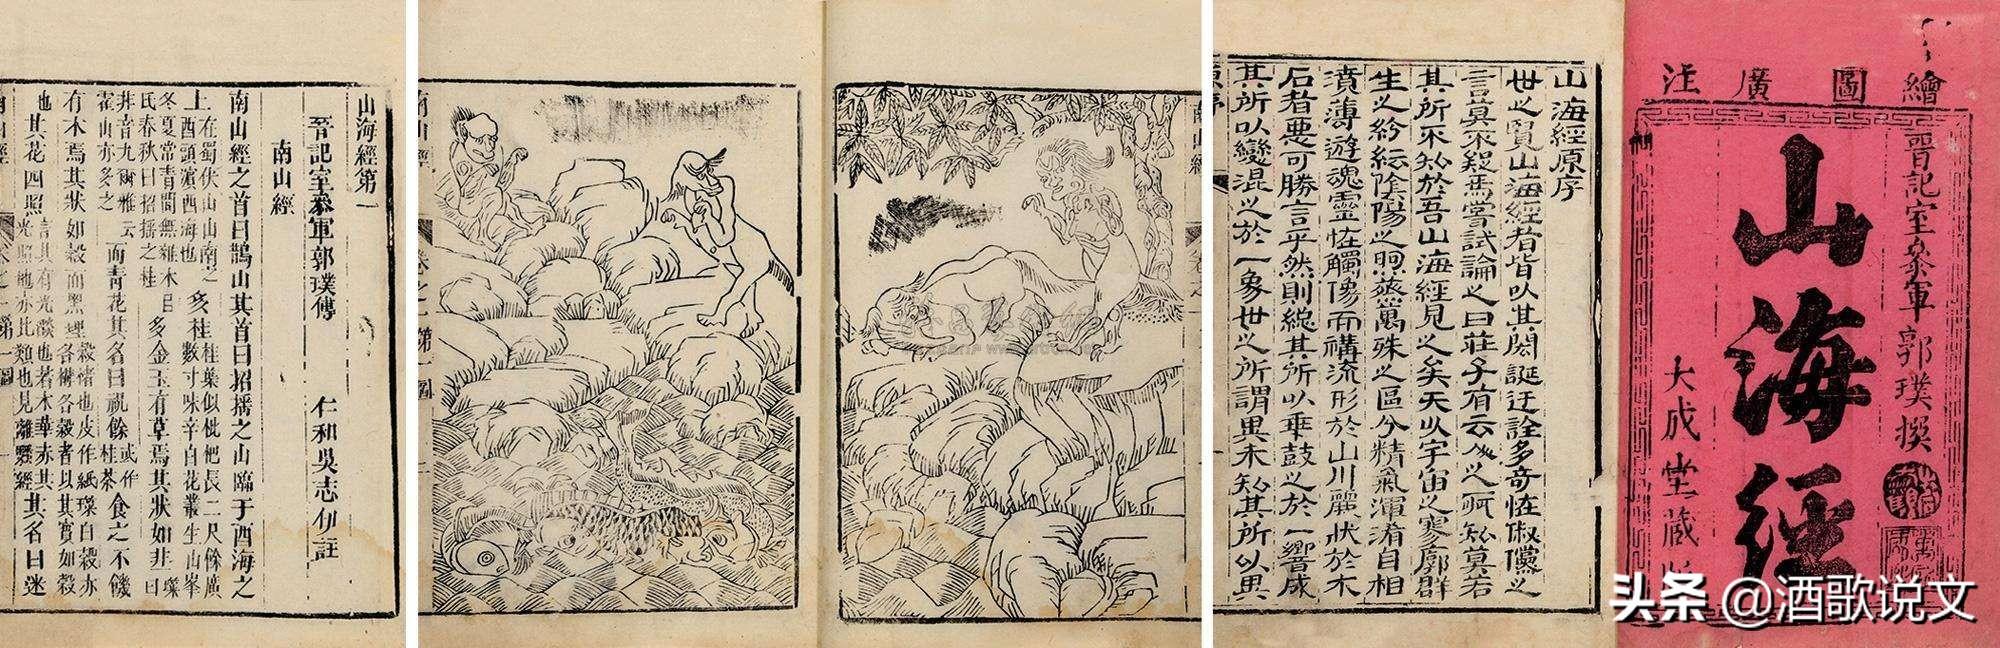 繪圖廣注
晉記室叅軍郭璞撰
山海經
大成堂藏
山海經原序
世之覽山海經者皆以其閎誕迂誇多奇怪俶儻之
言莫不疑焉嘗試論之曰莊子有云人之所知莫若
其所不知於吾山海經見之矣夫以宇宙之寥廓群
生之紛紜陰陽之煦蒸萬殊之區分精氣渾淆自相
濆薄遊魂靈怪觸像而構流形於山川麗狀於木
石者惡可勝言乎然則總其所以乖鼓之於一響成
其所以變混之於一象世之所謂異未知其所以異
原序
南山經 卷之
南山經 卷之一 第一圖
山海經第一
晉記室叅軍郭璞傳 仁和吳志伊註
南山經
南山經之首曰鵲山其首曰招搖之山臨于西海之
上在蜀伏山山南之西頭濱西海也多桂桂葉似枇杷長二尺餘廣數寸味辛白花叢生山峯
冬夏常青間無雜木呂氏春秋曰招搖之桂多金玉有草焉其狀如韭璨曰
韭音九爾雅云霍山亦多之而青花其名曰祝餘或作桂荼食之不饑
有木焉其狀如榖而黑理榖楮也皮作紙璨曰榖亦名構名榖者以其實如榖
也其花四照言其有光燄也若木華赤其光照地亦此類也見離騷經其名曰迷
南山經 卷之一 第一圖
头条 @酒歌说文